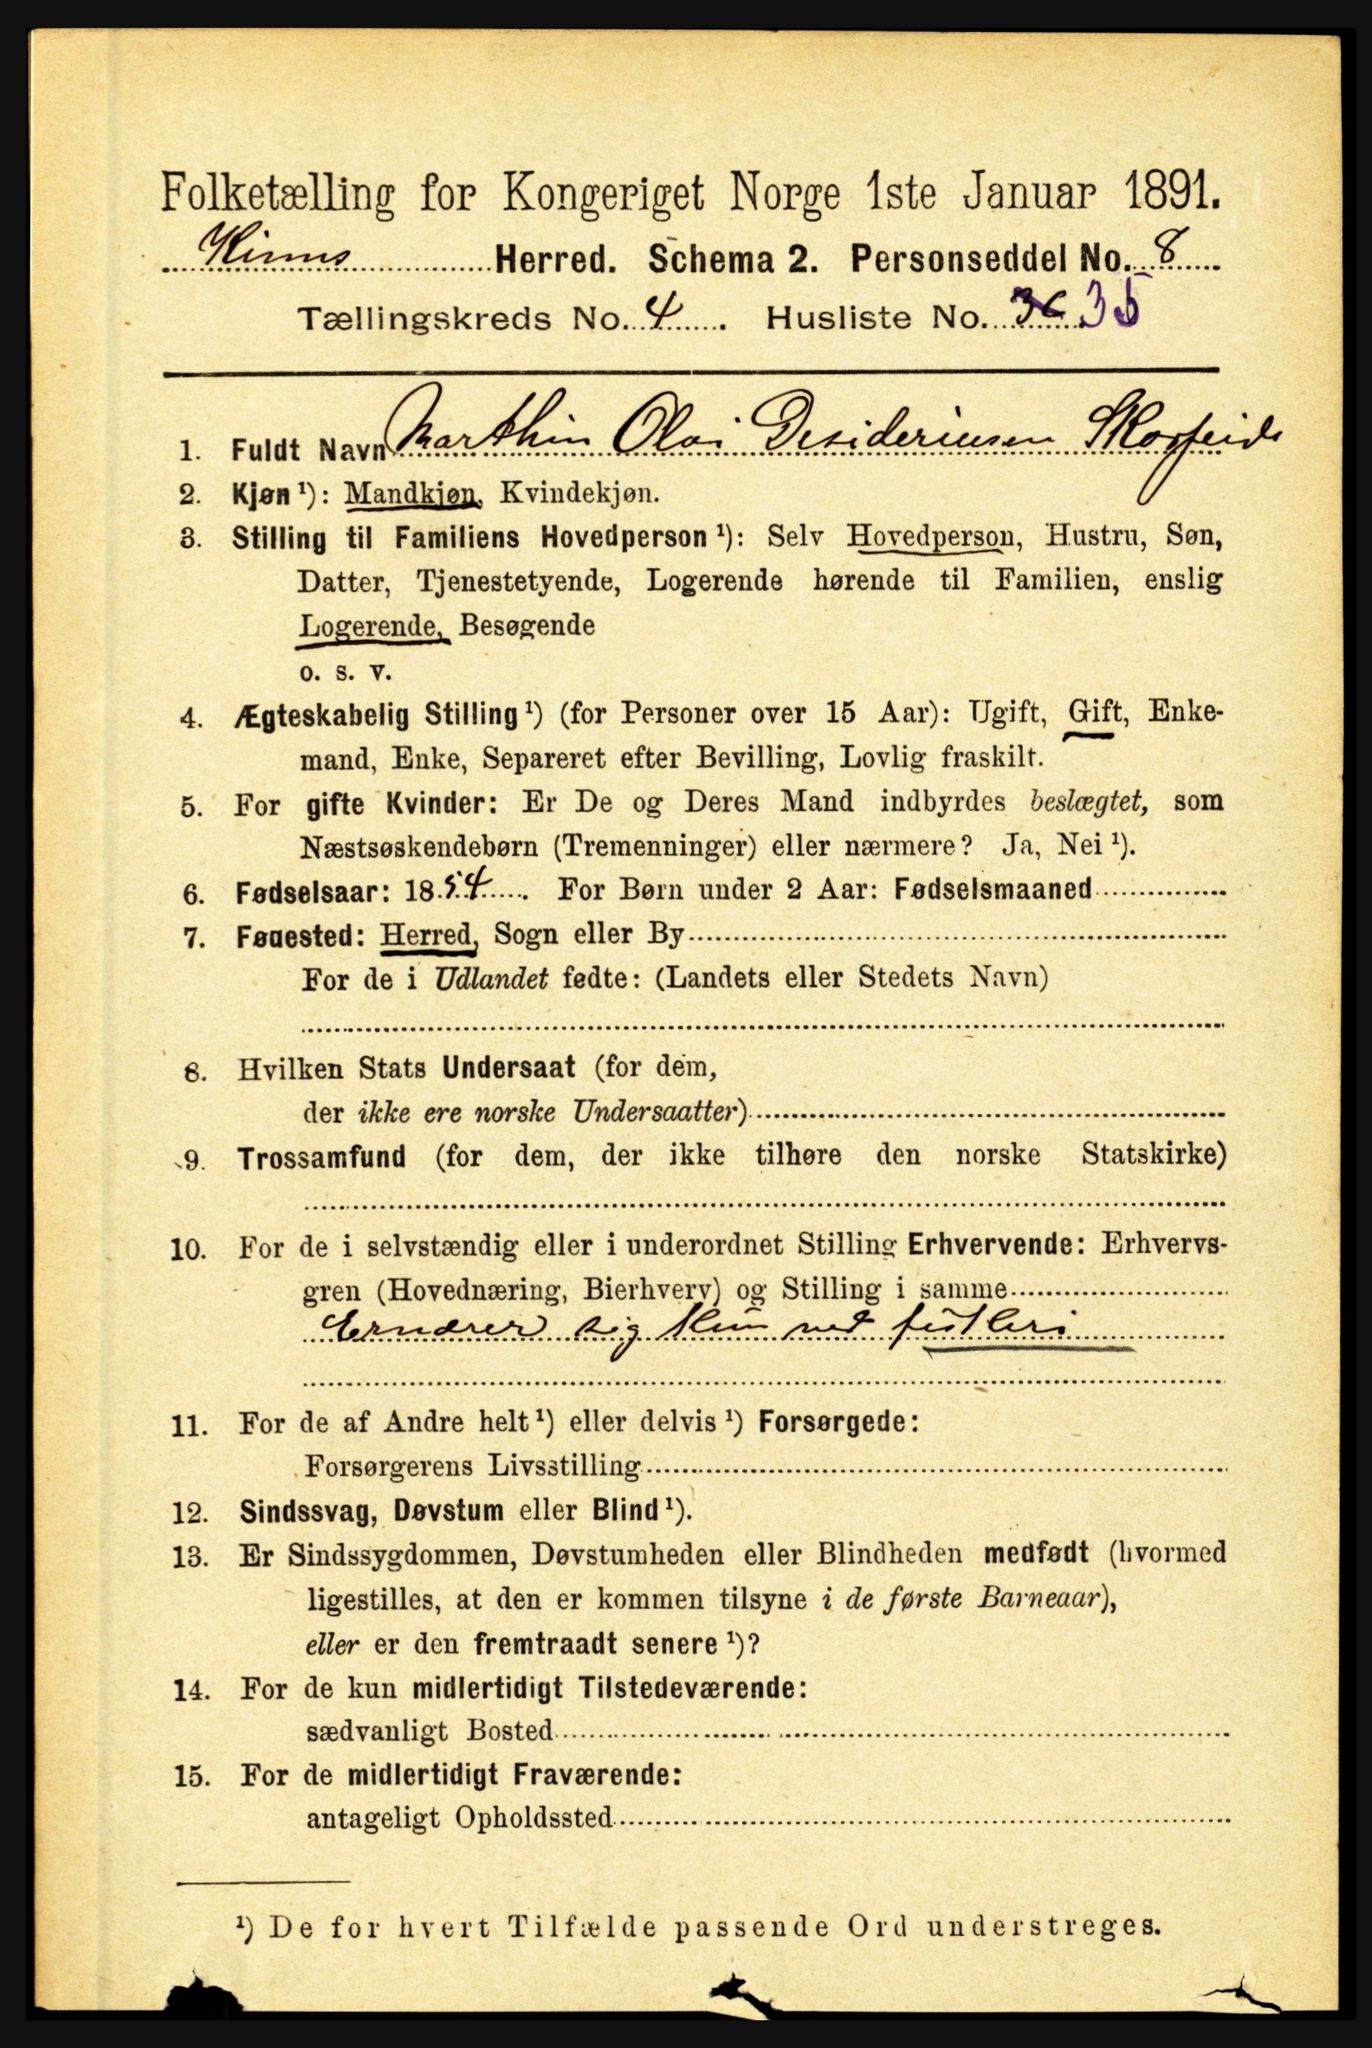 Folketælling for Kongeriget Norge 1ste Januar 1891.
Kinns Herred. Schema 2. Personseddel No. 8
Tællingskreds No. 4. Husliste No. 36 35
1. Fuldt Navn Marthin Olai Desideriusen
2. Kjøn ¹): Mandkjøn, Kvindekjøn.
3. Stilling til Familiens Hovedperson ¹): Selv Hovedperson, Hustru, Søn,
Datter, Tjenestetyende, Logerende hørende til Familien, enslig
Logerende, Besøgende
o. s. v.
4. Ægteskabelig Stilling ¹) (for Personer over 15 Aar): Ugift, Gift, Enke-
mand, Enke, Separeret efter Bevilling, Lovlig fraskilt.
5. For gifte Kvinder: Er De og Deres Mand indbyrdes beslægtet, som
Næstsøskendebørn (Tremenninger) eller nærmere? Ja, Nei ¹).
6. Fødselsaar: 1854. For Børn under 2 Aar: Fødselsmaaned
7. Fødested: Herred, Sogn eller By
For de i Udlandet fødte: (Landets eller Stedets Navn)
8. Hvilken Stats Undersaat (for dem,
der ikke ere norske Undersaatter)
9. Trossamfund (for dem, der ikke tilhøre den norske Statskirke)
10. For de i selvstændig eller i underordnet Stilling Erhvervende: Erhvervs-
gren (Hovednæring, Bierhverv) og Stilling i samme
Ernærer sig kun ved fiskeri
11. For de af Andre helt ¹) eller delvis ¹) Forsørgede:
Forsørgerens Livsstilling
12. Sindssvag, Døvstum eller Blind ¹).
13. Er Sindssygdommen, Døvstumheden eller Blindheden medfødt (hvormed
ligestilles, at den er kommen tilsyne i de første Barneaar),
eller er den fremtraadt senere ¹)?
14. For de kun midlertidigt Tilstedeværende:
sædvanligt Bosted
15. For de midlertidigt Fraværende:
antageligt Opholdssted
¹) De for hvert Tilfælde passende Ord understreges.